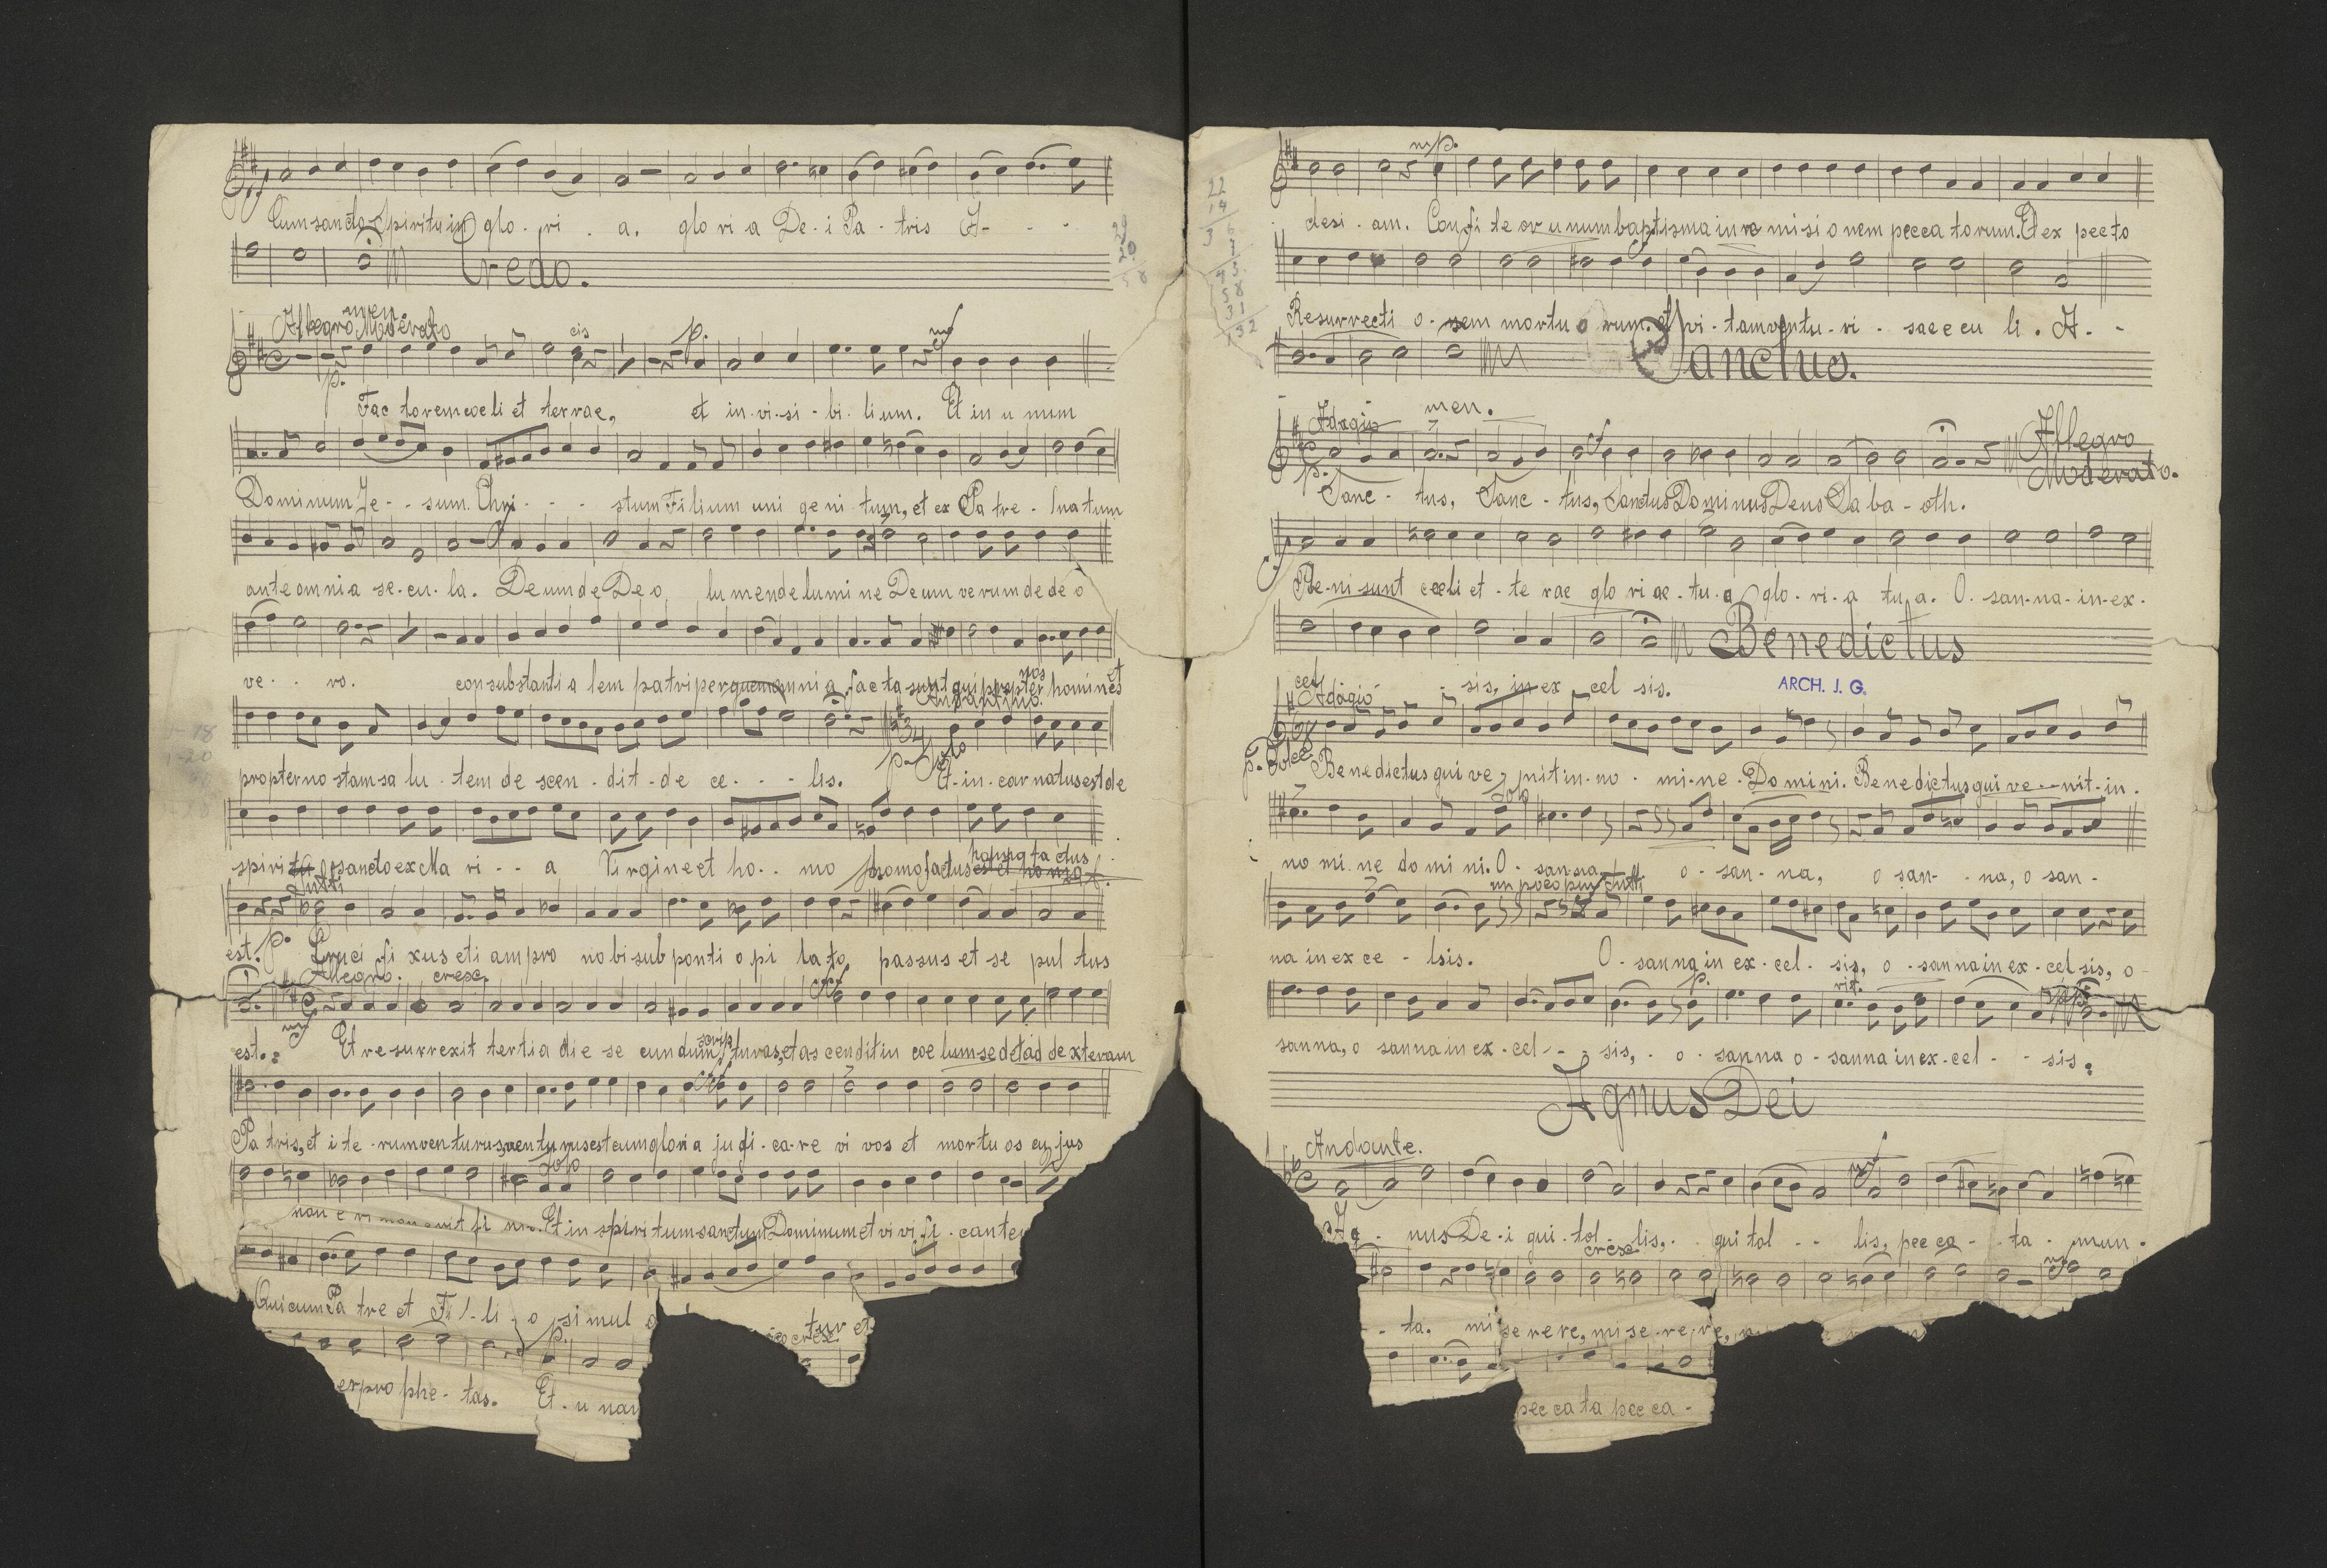 Cum sancto Spiritu in glo - ri - a. glo ri a De - i Pa - tris A - - -
men.
Credo.
Allegro Moderato
cis p. mf
p.
Fac torem coeli et terrae, et in - vi - si - bi - li um. Et in u num
Dominum Je - - sum. Chri - - - stum Filium uni ge ni - tum, et ex Pa tre - natum
ante omnia se - cu - la. Deum de De o, lumen de lumi ne Deum verum de de o
ve - - ro. con substanti a lem patri per quem omni a facta sunt qui propter nos homines et
Andantino.
propter no stam sa lu - tem de scen - dit - de ce - - - lis. Et - in - car natus est de
p. Solo
spiritu sancto ex Ma ri - - a Virgine et ho - - mo homo factus est et homo f.
homo fa ctus
Tutti
est. p. Cruci fi xus eti am pro nobi sub ponti o pi la to, passus et se pul tus
Allegro. cresc.
mf
est. Et resurrexit tertia die se cundum scrip turas, et as cendit in coe lum sedet ad dexteram
Pa tris, et i te - rum venturus, venturus est cum gloria judi - ca - re vi vos et mortu os cu jus
Solo
non e ri non erit fi nis. Et in spiri tum sanctum Dominum et vi vi fi - cante
Qui cum Pa tre et Fi l - li - o simul
tur et
cresc
p.
per pro phe - tas. Et - u nam
22
14
mp.
clesi - am. Confi te or u num baptisma in re mi si o nem pecca torum. Et ex pecto
Resurrecti o - nem mortu o rum. et vi - tam ventu - ri - sae e cu li. A - -
men.
Sanctus.
Adagio
Allegro Moderato.
p. Sanc - tus, Sanc - tus, Sanctus Dominus Deus Sa ba - oth.
Ple - ni sunt coeli et - te rae glo ri ae - tu - a glo - ri - a tu a. O - san - na - in - ex -
cel - sis, in ex cel sis.
Benedictus
ARCH. J. G.
Adagio
p. Dolce Benedictus qui ve nit in - no - mi - ne - Do mini. Benedictus qui ve - - nit - in -
Solo
no mi - ne do mi ni. O - sanna o - san - na, o san - - na, o san -
un poco piu Tutti
na in ex ce - lsis. O - sanna in ex - cel - sis, o - sanna in ex - cel sis, o -
p. rit. pp
sanna, o sanna in ex - cel - - - sis, - o - sanna o - sanna in ex - cel - - sis.
Agnus Dei
Andante.
mf
Ag - nus De - i qui - tol - lis, - qui tol - - lis, pec ca - - ta - mun -
cresc. mf
- - ta. mi se re re, mi se - re re,
pec ca ta pec ca -